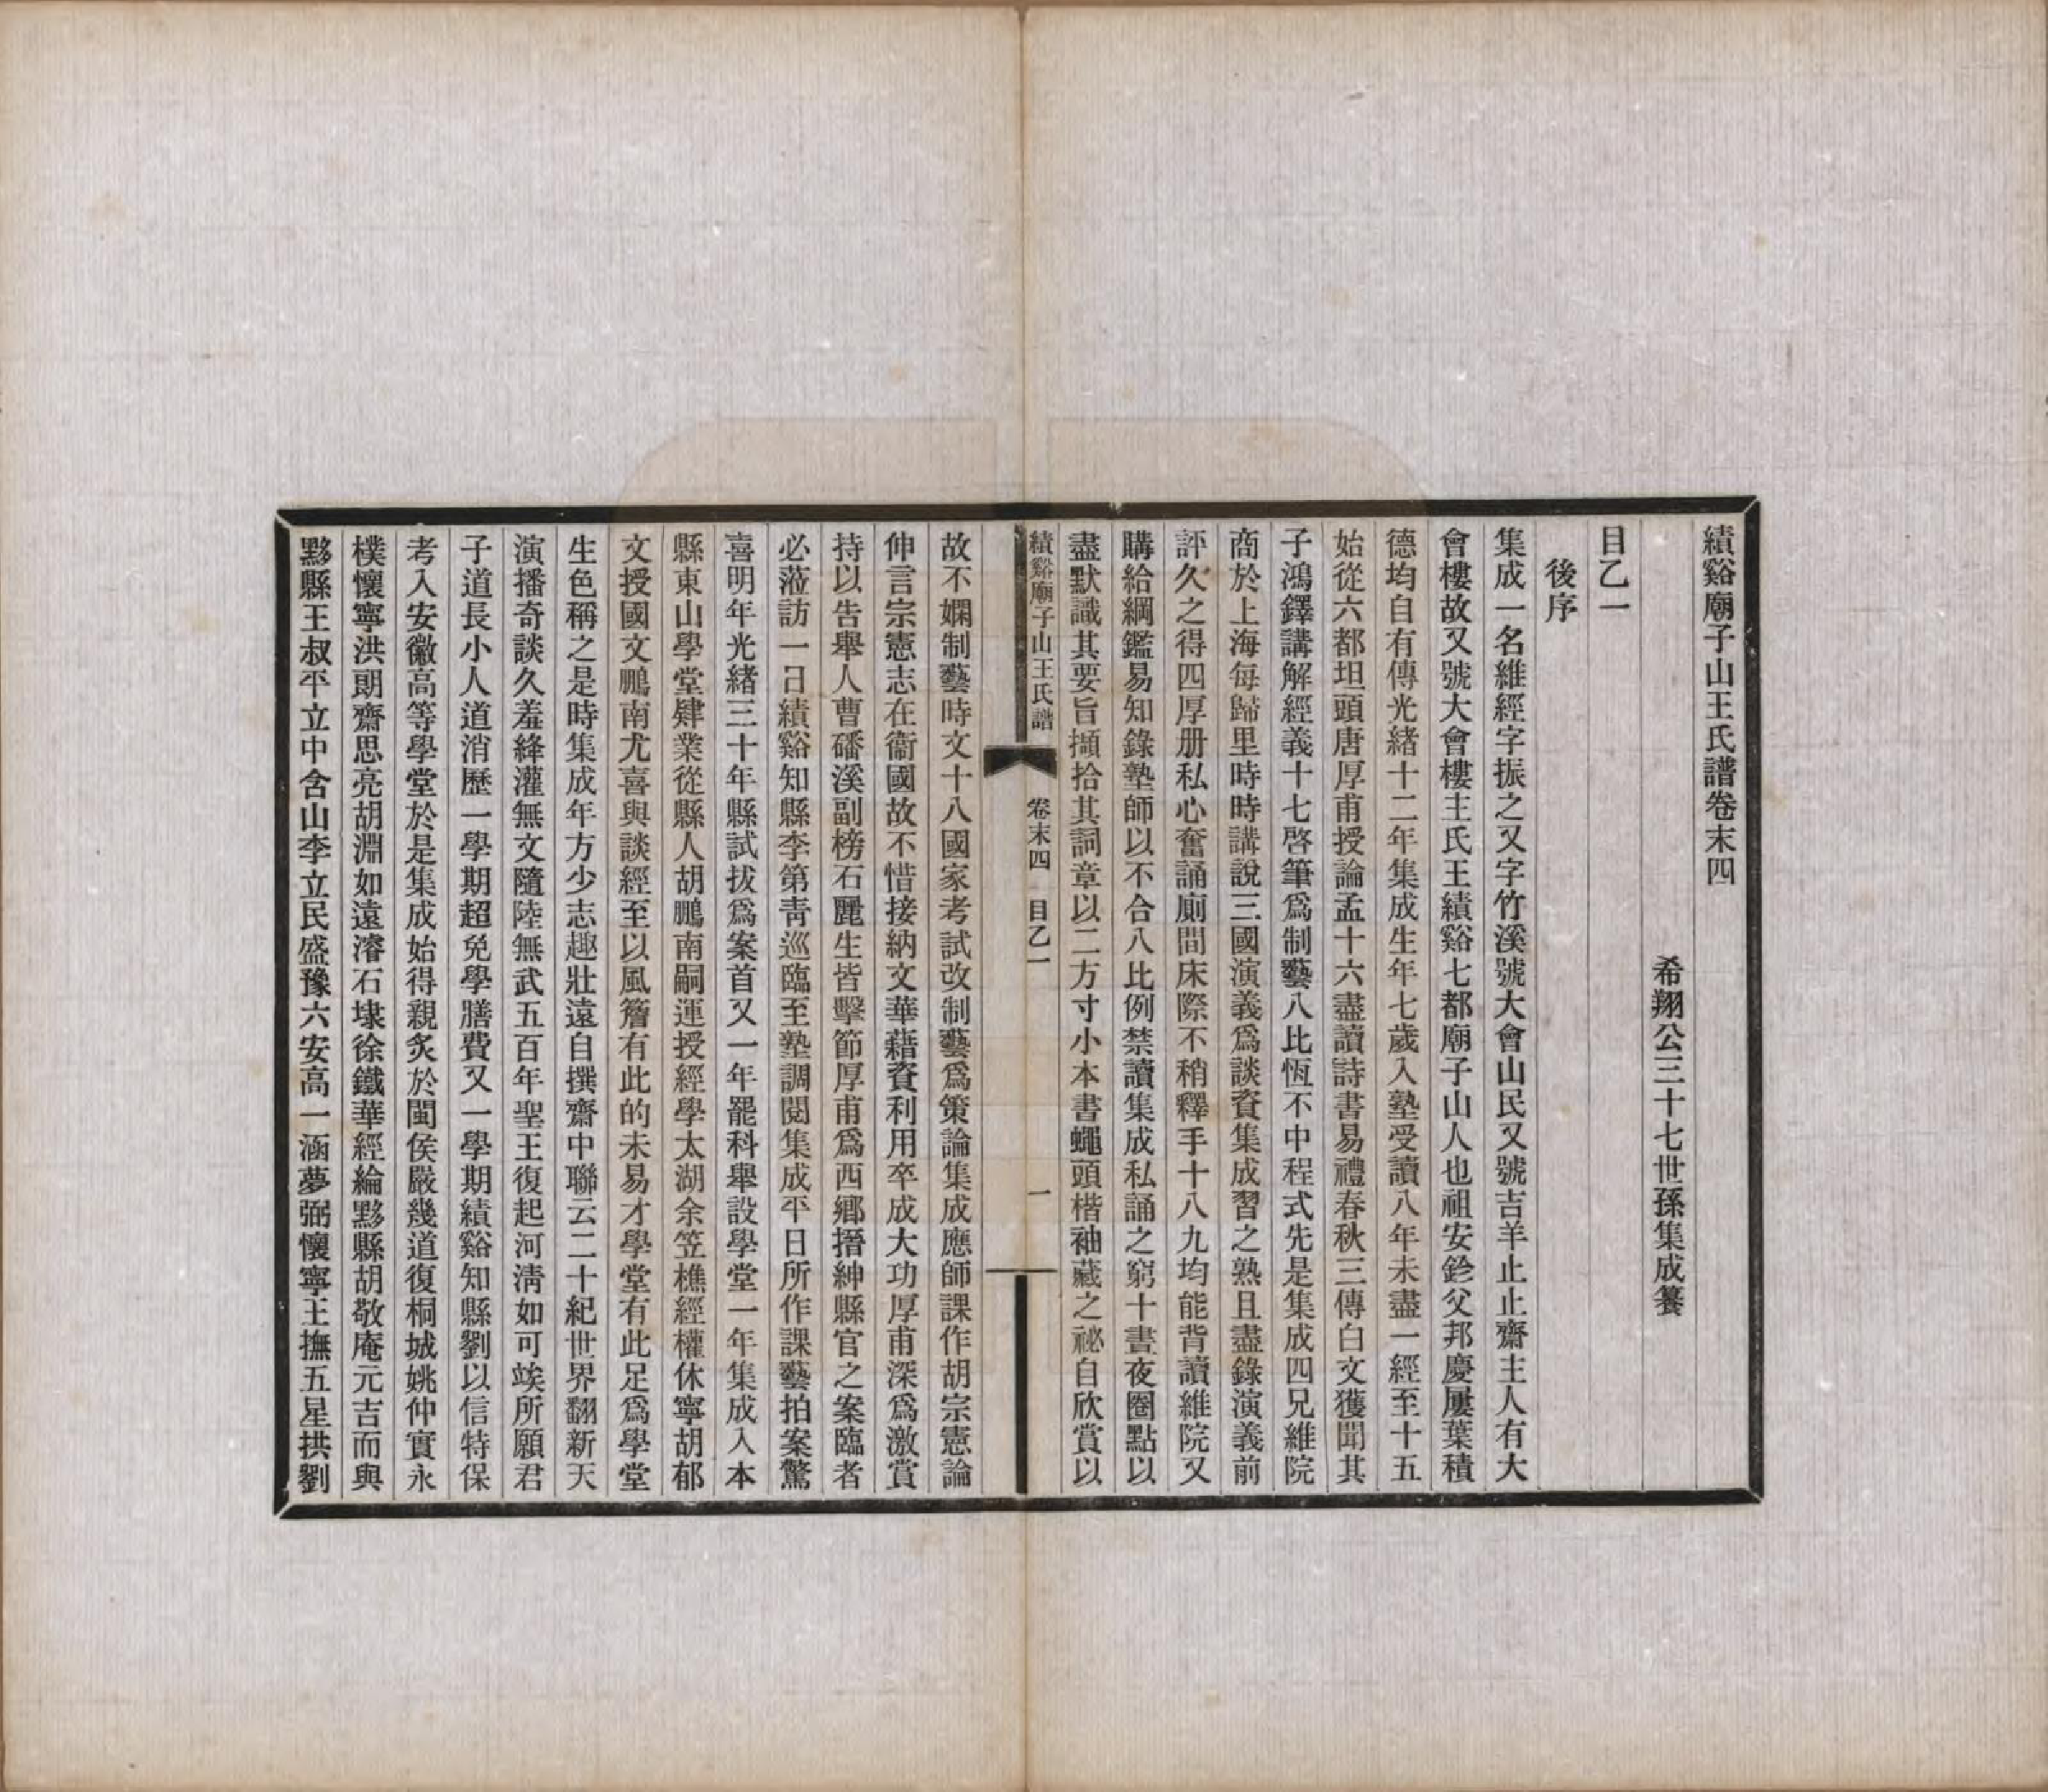 績谿廟子山王氏譜卷末四
希翔公三十七世孫集成纂
目乙一
後序
集成一名維經字振之又字竹溪號大會山民又號吉羊止止齋主人有大
會樓故又號大會樓主氏王績谿七都廟子山人也祖安鉁父邦慶屢葉積
德均自有傳光緒十二年集成生年七歲入塾受讀八年未盡一經至十五
始從六都坦頭唐厚甫授論孟十六盡讀詩書易禮春秋三傳白文獲聞其
子鴻鐸講解經義十七啓筆爲制藝八比恆不中程式先是集成四兄維院
商於上海每歸里時時講說三國演義爲談資集成習之熟且盡錄演義前
評久之得四厚册私心奮誦廁間床際不稍釋手十八九均能背讀維院又
購給綱鑑易知錄塾師以不合八比例禁讀集成私誦之窮十晝夜圈點以
盡默識其要旨擷拾其詞章以二方寸小本書蠅頭楷袖藏之祕自欣賞以
績谿廟子山王氏譜 卷末四 目乙一 一
故不嫻制藝時文十八國家考試改制藝爲策論集成應師課作胡宗憲論
伸言宗憲志在衞國故不惜接納文華藉資利用卒成大功厚甫深爲激賞
持以告舉人曹磻溪副榜石麗生皆擊節厚甫爲西鄕搢紳縣官之案臨者
必蒞訪一日績谿知縣李第靑巡臨至塾調閱集成平日所作課藝拍案驚
喜明年光緒三十年縣試拔爲案首又一年罷科舉設學堂一年集成入本
縣東山學堂肄業從縣人胡鵬南嗣運授經學太湖余笠樵經權休寧胡郁
文授國文鵬南尤喜與談經至以風簷有此的未易才學堂有此足爲學堂
生色稱之是時集成年方少志趣壯遠自撰齋中聯云二十紀世界翻新天
演播奇談久羞絳灌無文隨陸無武五百年聖王復起河淸如可竢所願君
子道長小人道消歷一學期超免學膳費又一學期績谿知縣劉以信特保
考入安徽高等學堂於是集成始得親炙於閩侯嚴幾道復桐城姚仲實永
樸懷寧洪朗齋思亮胡淵如遠濬石埭徐鐵華經綸黟縣胡敬庵元吉而與
黟縣王叔平立中含山李立民盛豫六安高一涵夢弼懷寧王撫五星拱劉